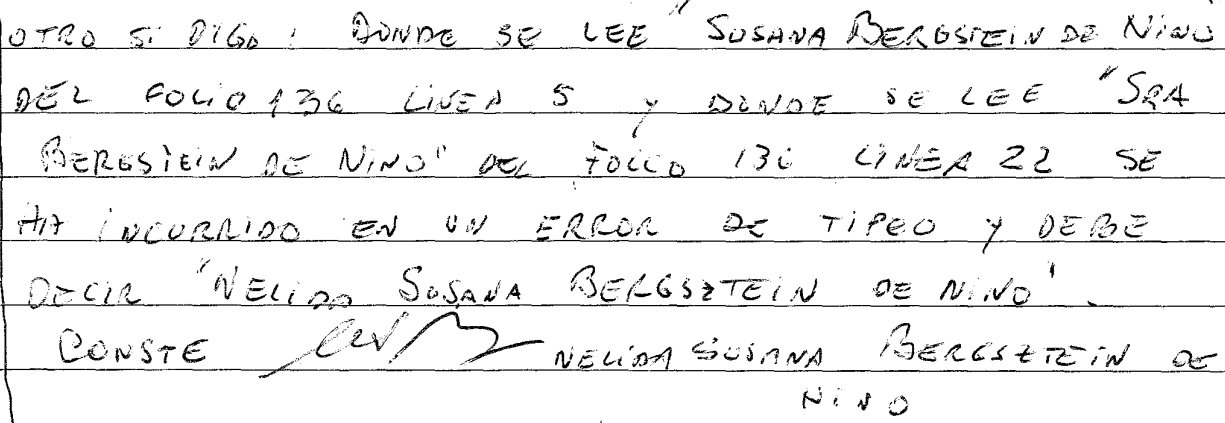 OTRO SI DIGO: DONDE SE LEE "SUSANA BERGSTEIN DE NINO
DEL FOLIO 136 LINEA 5 y DONDE SE LEE "SRA
BERGSTEIN DE NINO" DEL FOLIO 136 LINEA 22 SE
HA INCURRIDO EN UN ERROR DE TIPEO Y DEBE
DECIR "NELIDA SUSANA BERGSZTEIN DE NINO".
CONSTE NELIDA SUSANA BERGSZTEIN DE
NINO